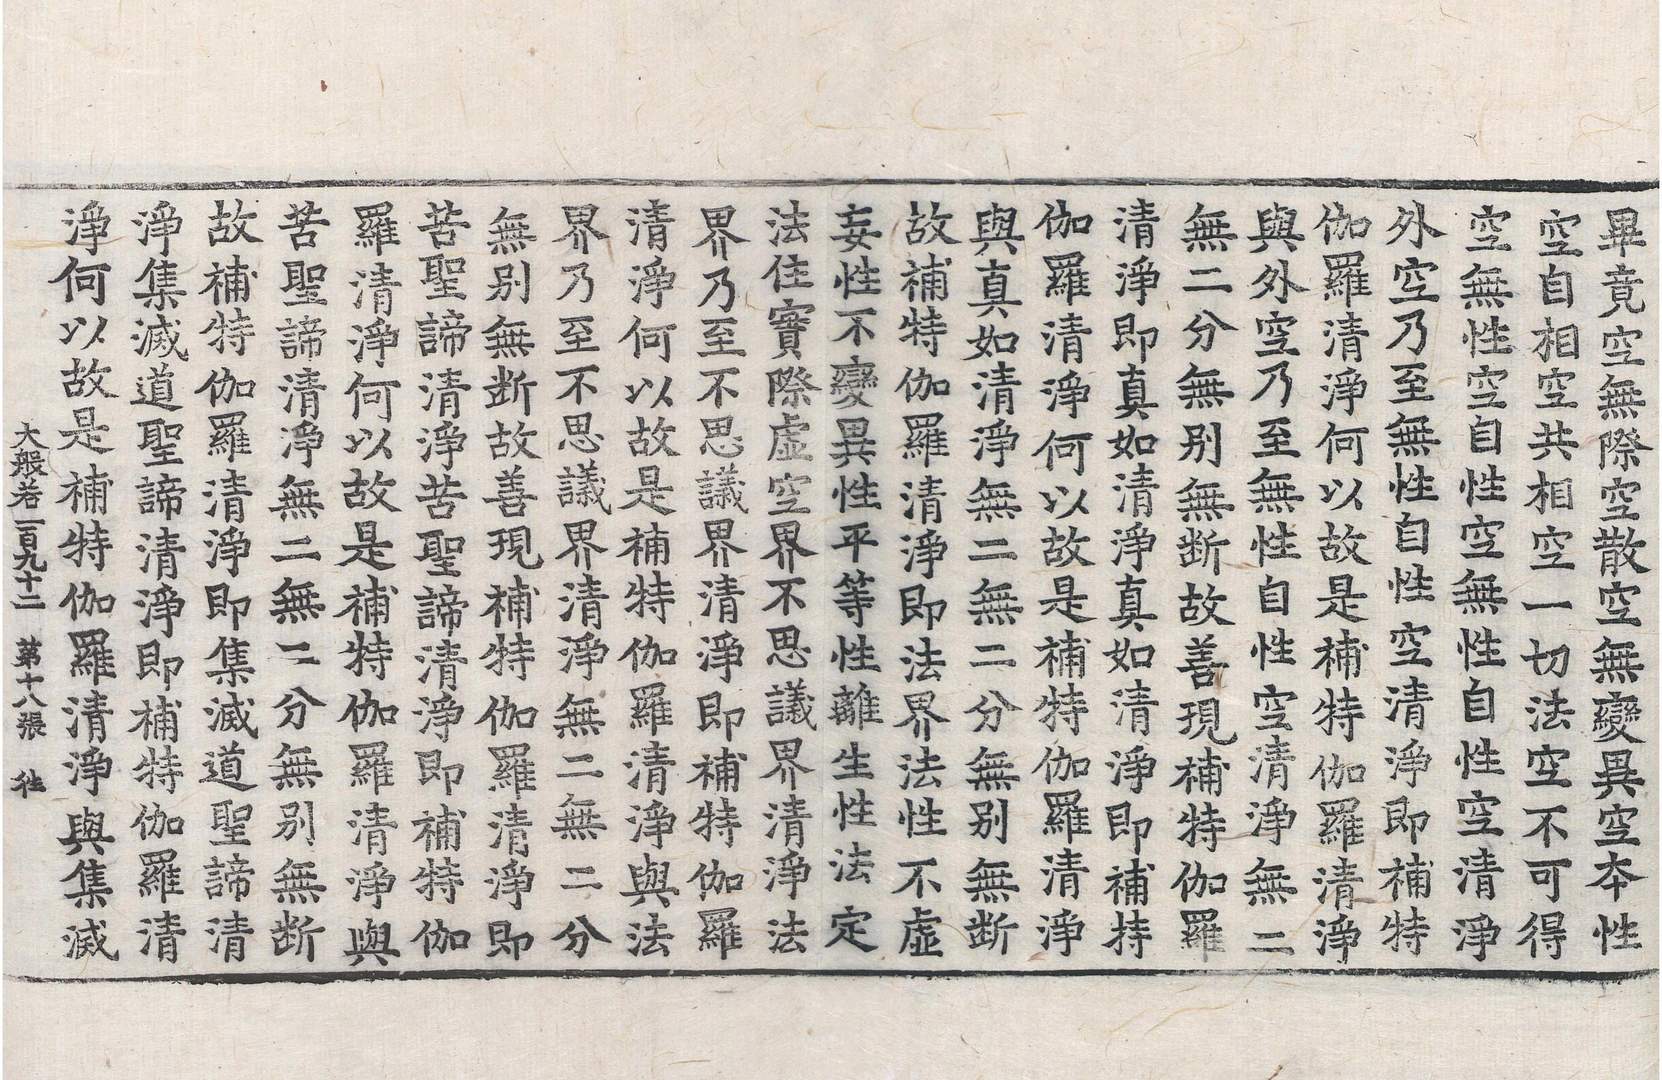 畢竟空無際空散空無變異空夲性
空自相空共相空一切法空不可得
空無性空自性空無性自性空清淨
外空乃至無性自性空清淨即補特
伽羅清淨何以故是補特伽羅清淨
與外空乃至無性自性空清淨無二
無二分無別無断故善現補特伽羅
清淨即真如清淨真如清淨即補特
伽羅清淨何以故是補特伽羅清淨
與真如清淨無二無二分無別無断
故補特伽羅清淨即法界法性不虛
妄性不變異性平等性離生性法定
法住實際虛空界不思議界清淨法
界乃至不思議界清淨即補特伽羅
清淨何以故是補特伽羅清淨與法
界乃至不思議界清淨無二無二分
無別無断故善現補特伽羅清淨即
苦聖諦清淨苦聖諦清淨即補特伽
羅清淨何以故是補特伽羅清淨與
苦聖諦清淨無二無二分無別無断
故補特伽羅清淨即集滅道聖諦清
淨集滅道聖諦清淨即補特伽羅清
淨何以故是補特伽羅清淨與集滅
大般若一百九十二 第十八張